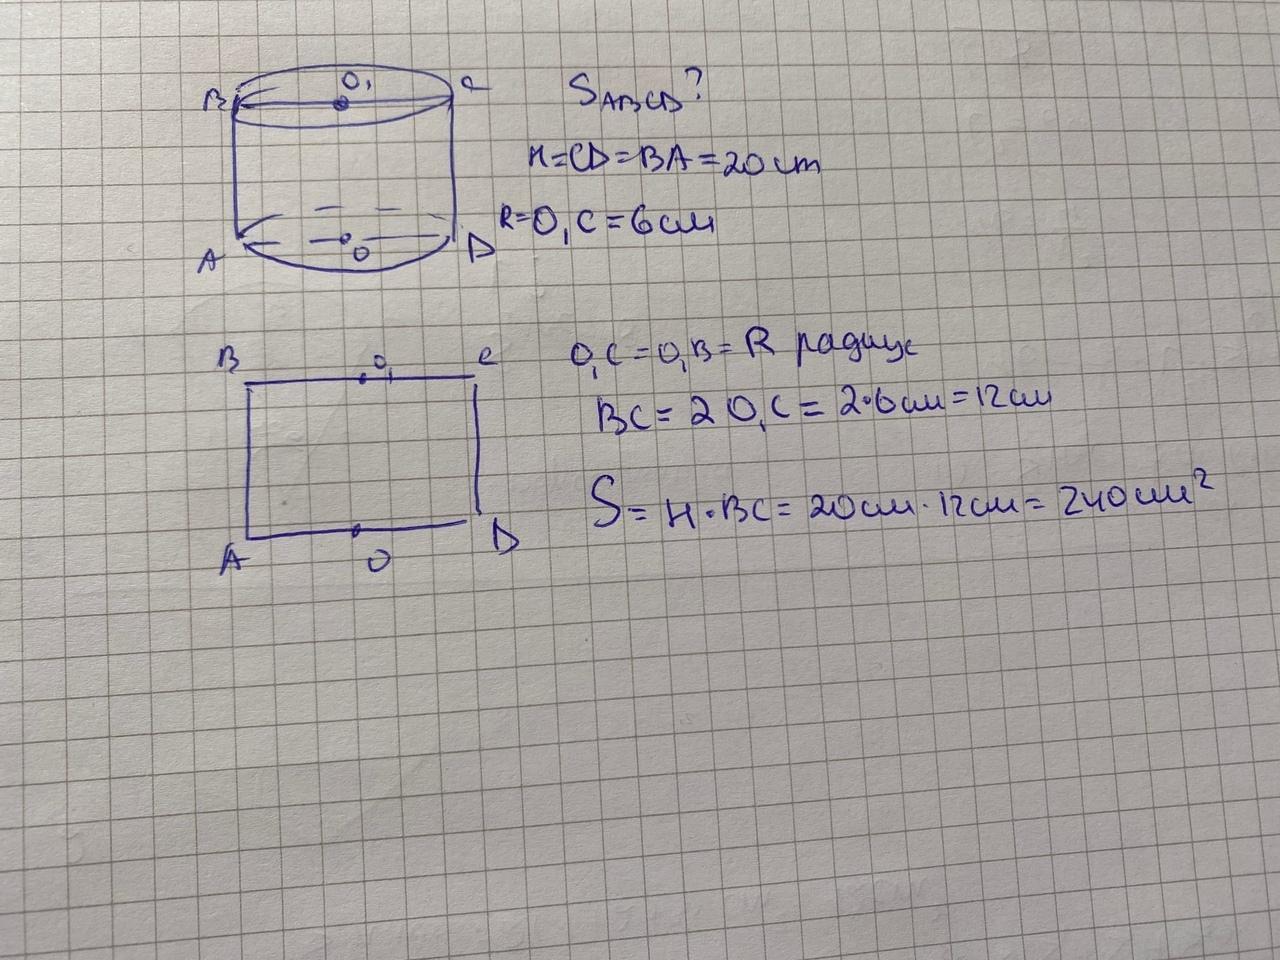 B O₁ C
S_ABCD?
H=CD=BA=20cm
R=O₁C=6см
A O D
B O₁ C
O₁C=O₁B=R радиус
BC=2O₁C=2·6см=12см
S=H·BC=20см·12см=240см²
A O D